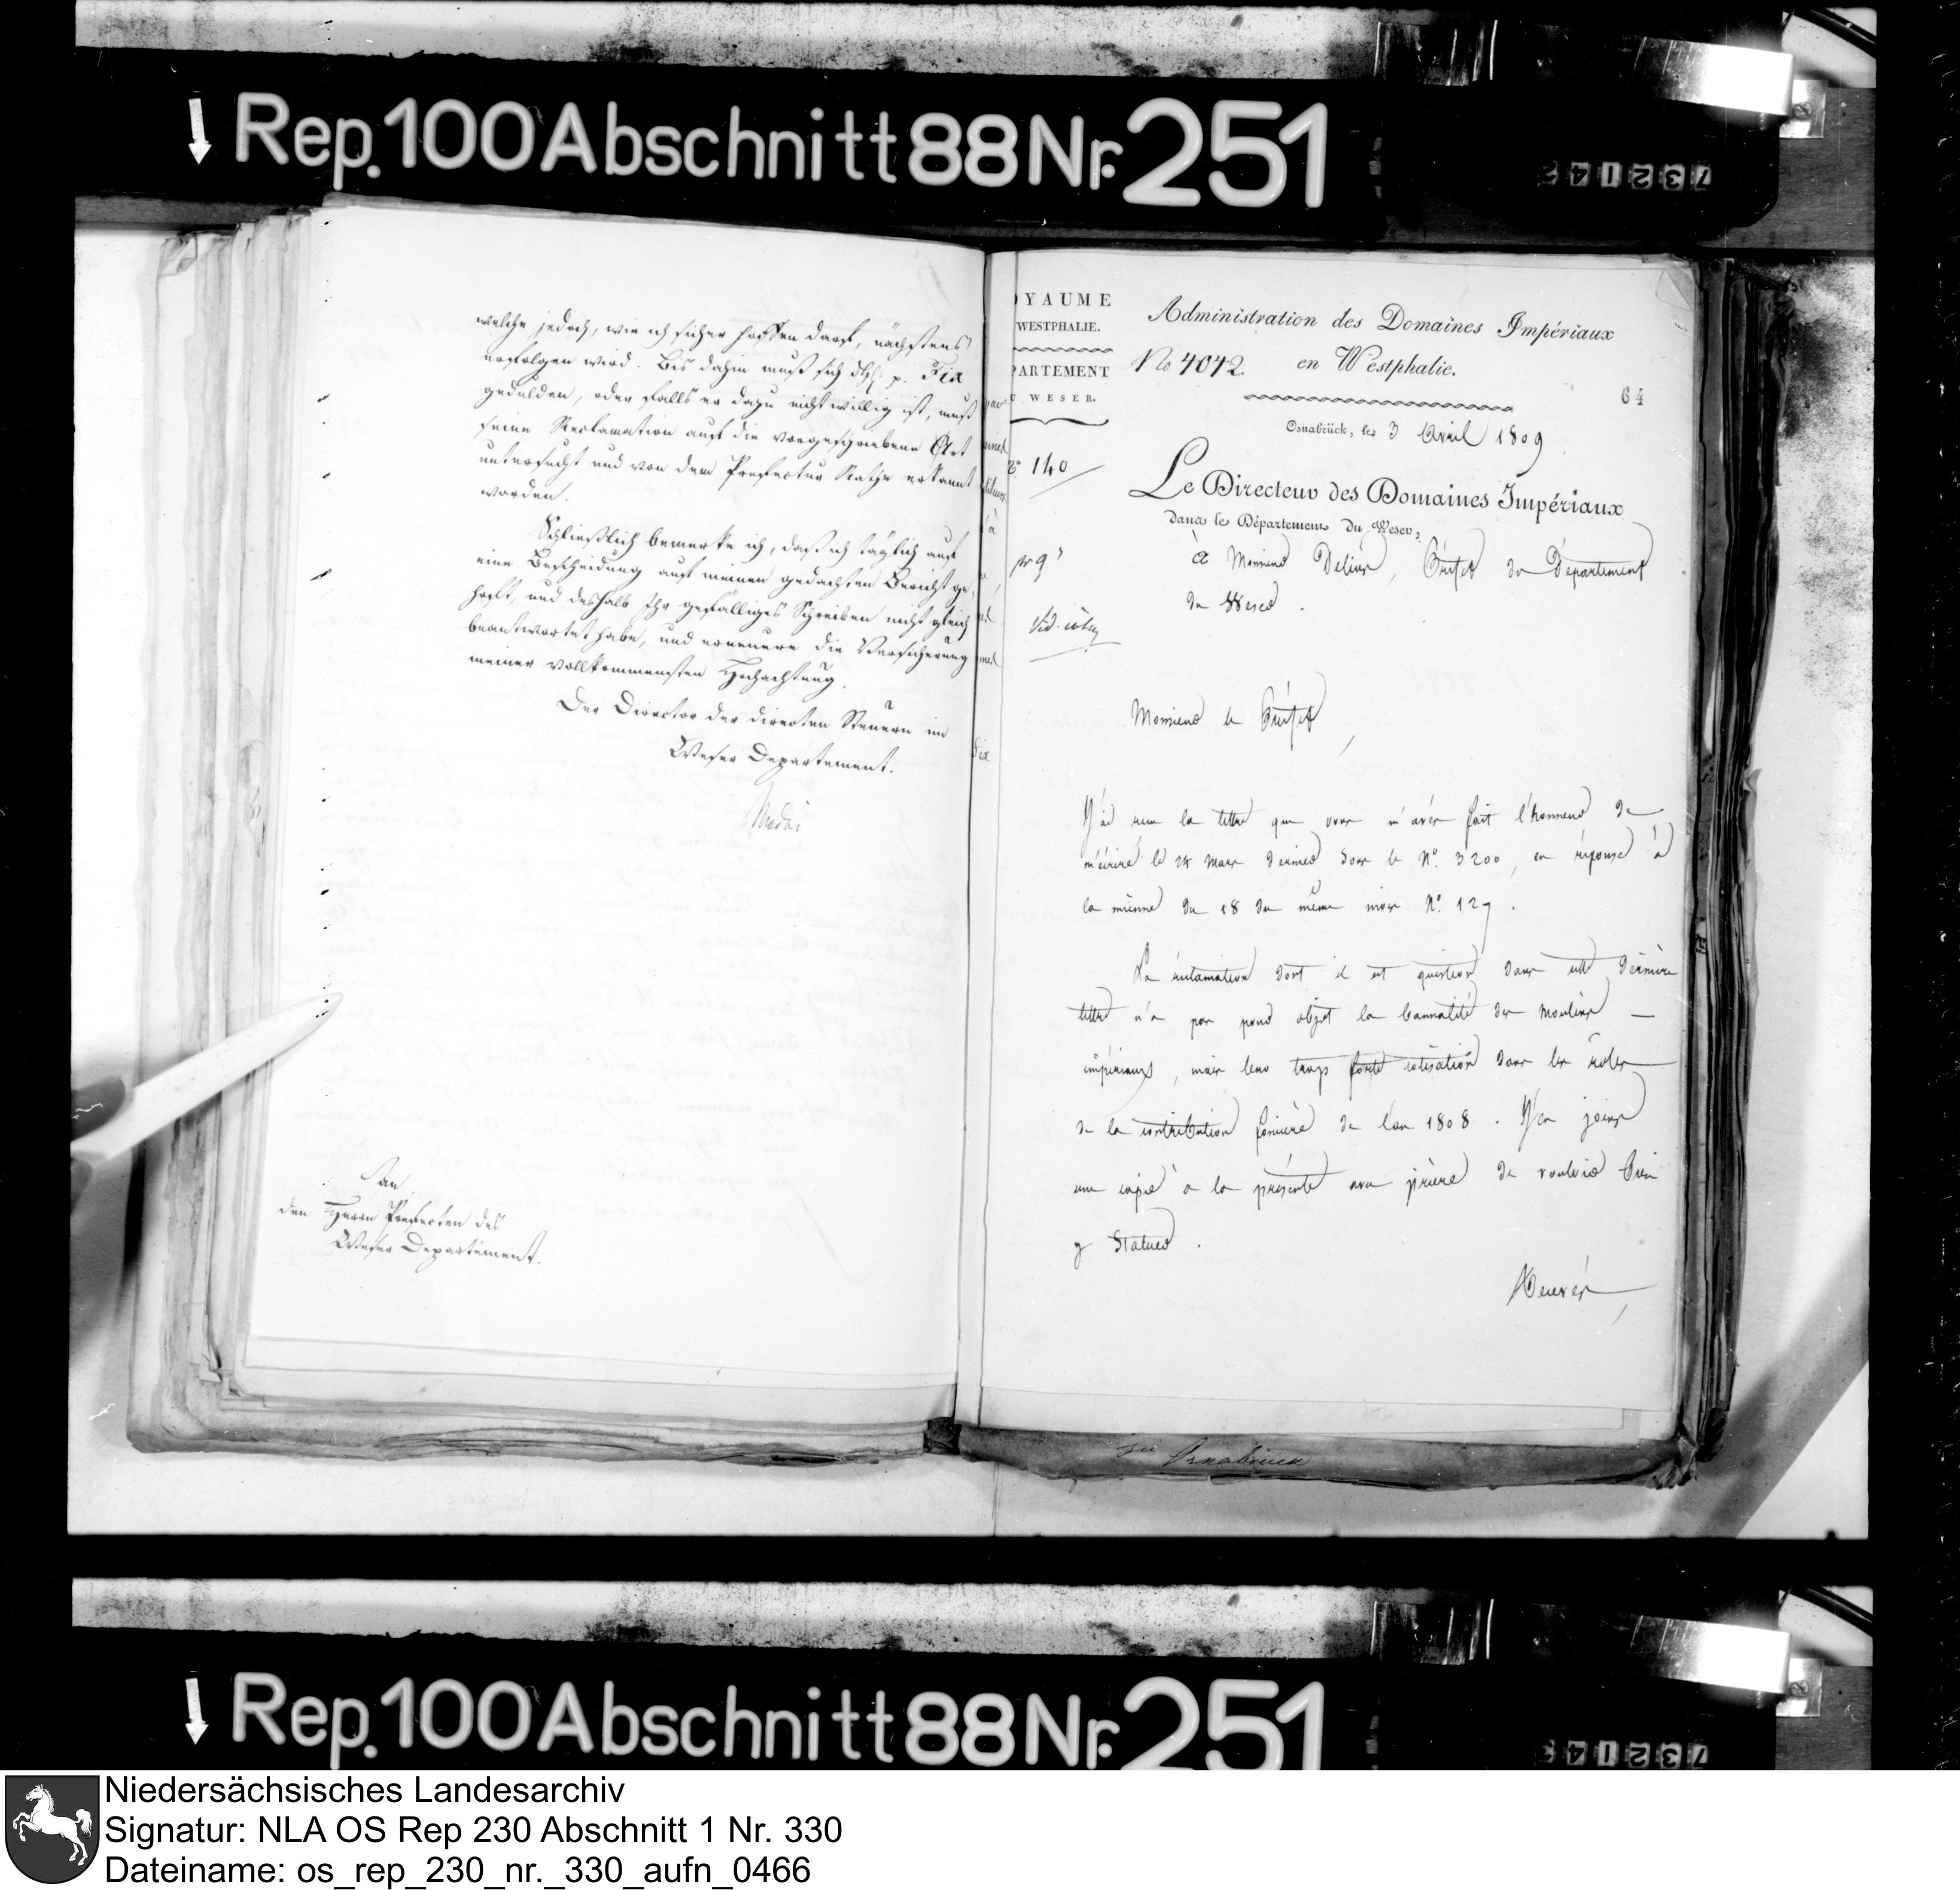 Rep. 100 Abschnitt 88 Nr. 251
732142
welche jedoch, wie ich sicher hoffen darf, nächstens
erfolgen wird. Bis dahin muß sich p. Fix
gedulden, oder falls er dazu nicht willig ist, muß
seine Reclamation auf die vorgeschriebene Art
untersucht und von dem Praefectur Rathe erkannt
werden.
Schließlich bemerke ich, daß ich täglich auf
eine Bescheidung auf meinen gedachten Bericht ge-
hofft, und deshalb Ihr gefälliges Schreiben nicht gleich
beantwortet habe, und erneuere die Versicherung
meiner vollkommensten Hochachtung.
Der Director der directen Steuern im
Weser Departement.
An
den Herrn Praefecten des
Weser Departement.
Fix
OYAUME
WESTPHALIE.
PARTEMENT
WESER.
140
Administration des Domaines Impériaux
No 4042. en Westphalie.
64
Osnabrück, le 3 Avril 1809
Le Directeur des Domaines Impériaux
dans le Département du Weser,
à Monsieur Delius, Préfet du Département
du Weser.
Monsieur le Préfet,
J'ai reçu la lettre que vous m'avez fait l'honneur de
m'écrire le 28 mars dernier sous le N.° 3200, en réponse à
la mienne du 18 du même mois N.° 127.
La réclamation dont il est question dans cette dernière
lettre n'a pas pour objet la bannalité des moulins
impériaux, mais leur trop forte cotisation dans les rôles
de la contribution foncière de l'an 1808. J'en joins
une copie à la présente avec prière de vouloir bien
y statuer.
Recevez,
Osnabrück
Rep. 100 Abschnitt 88 Nr. 251
732142
Niedersächsisches Landesarchiv
Signatur: NLA OS Rep 230 Abschnitt 1 Nr. 330
Dateiname: os_rep_230_nr._330_aufn_0466